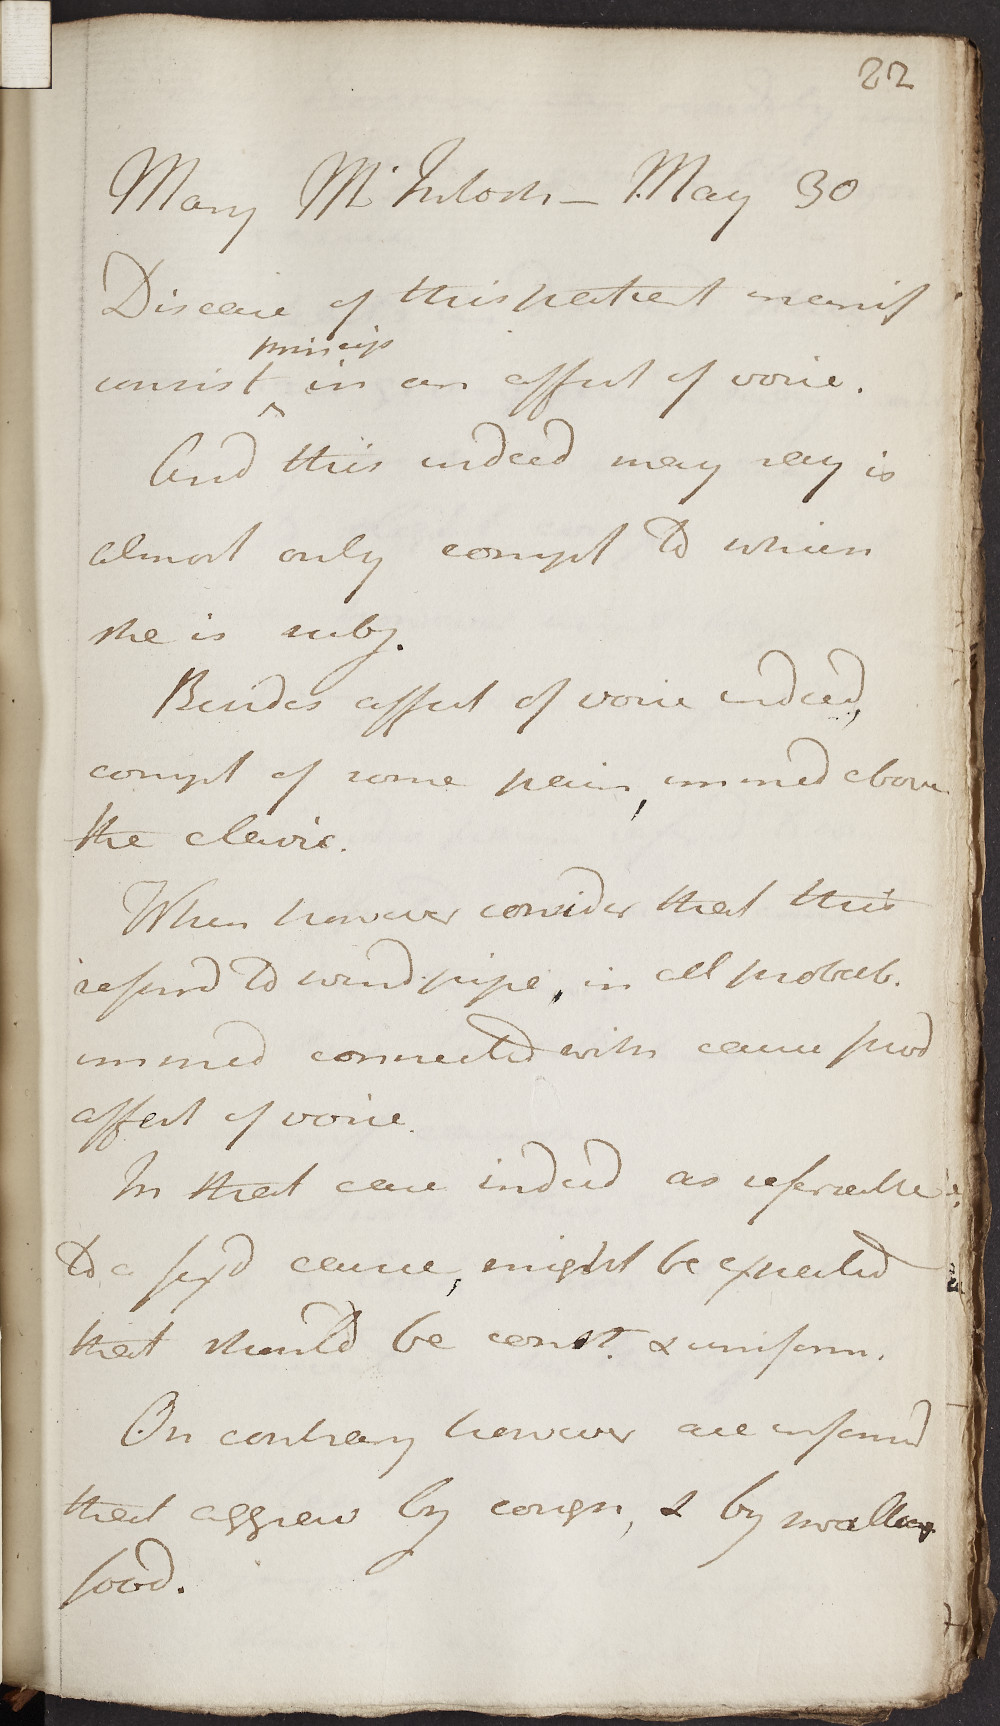 22
Mary Mc Intosh – May 30
Disease of this patient manif
princip
consist in an affect of voice.
And this indeed may say is
almost only compt to which
she is subj.
Besides affect of voice indeed,
compt of some pain, immed above
the clavic.
When however consider that this
referred to windpipe, in all probab.
immed connected with cause prod
affect of voice.
In that case indeed as referable
to a fix'd cause, might be expected
that should be const. & uniform.
On contrary however are informd
that aggrav by cough, & by swallow
food.